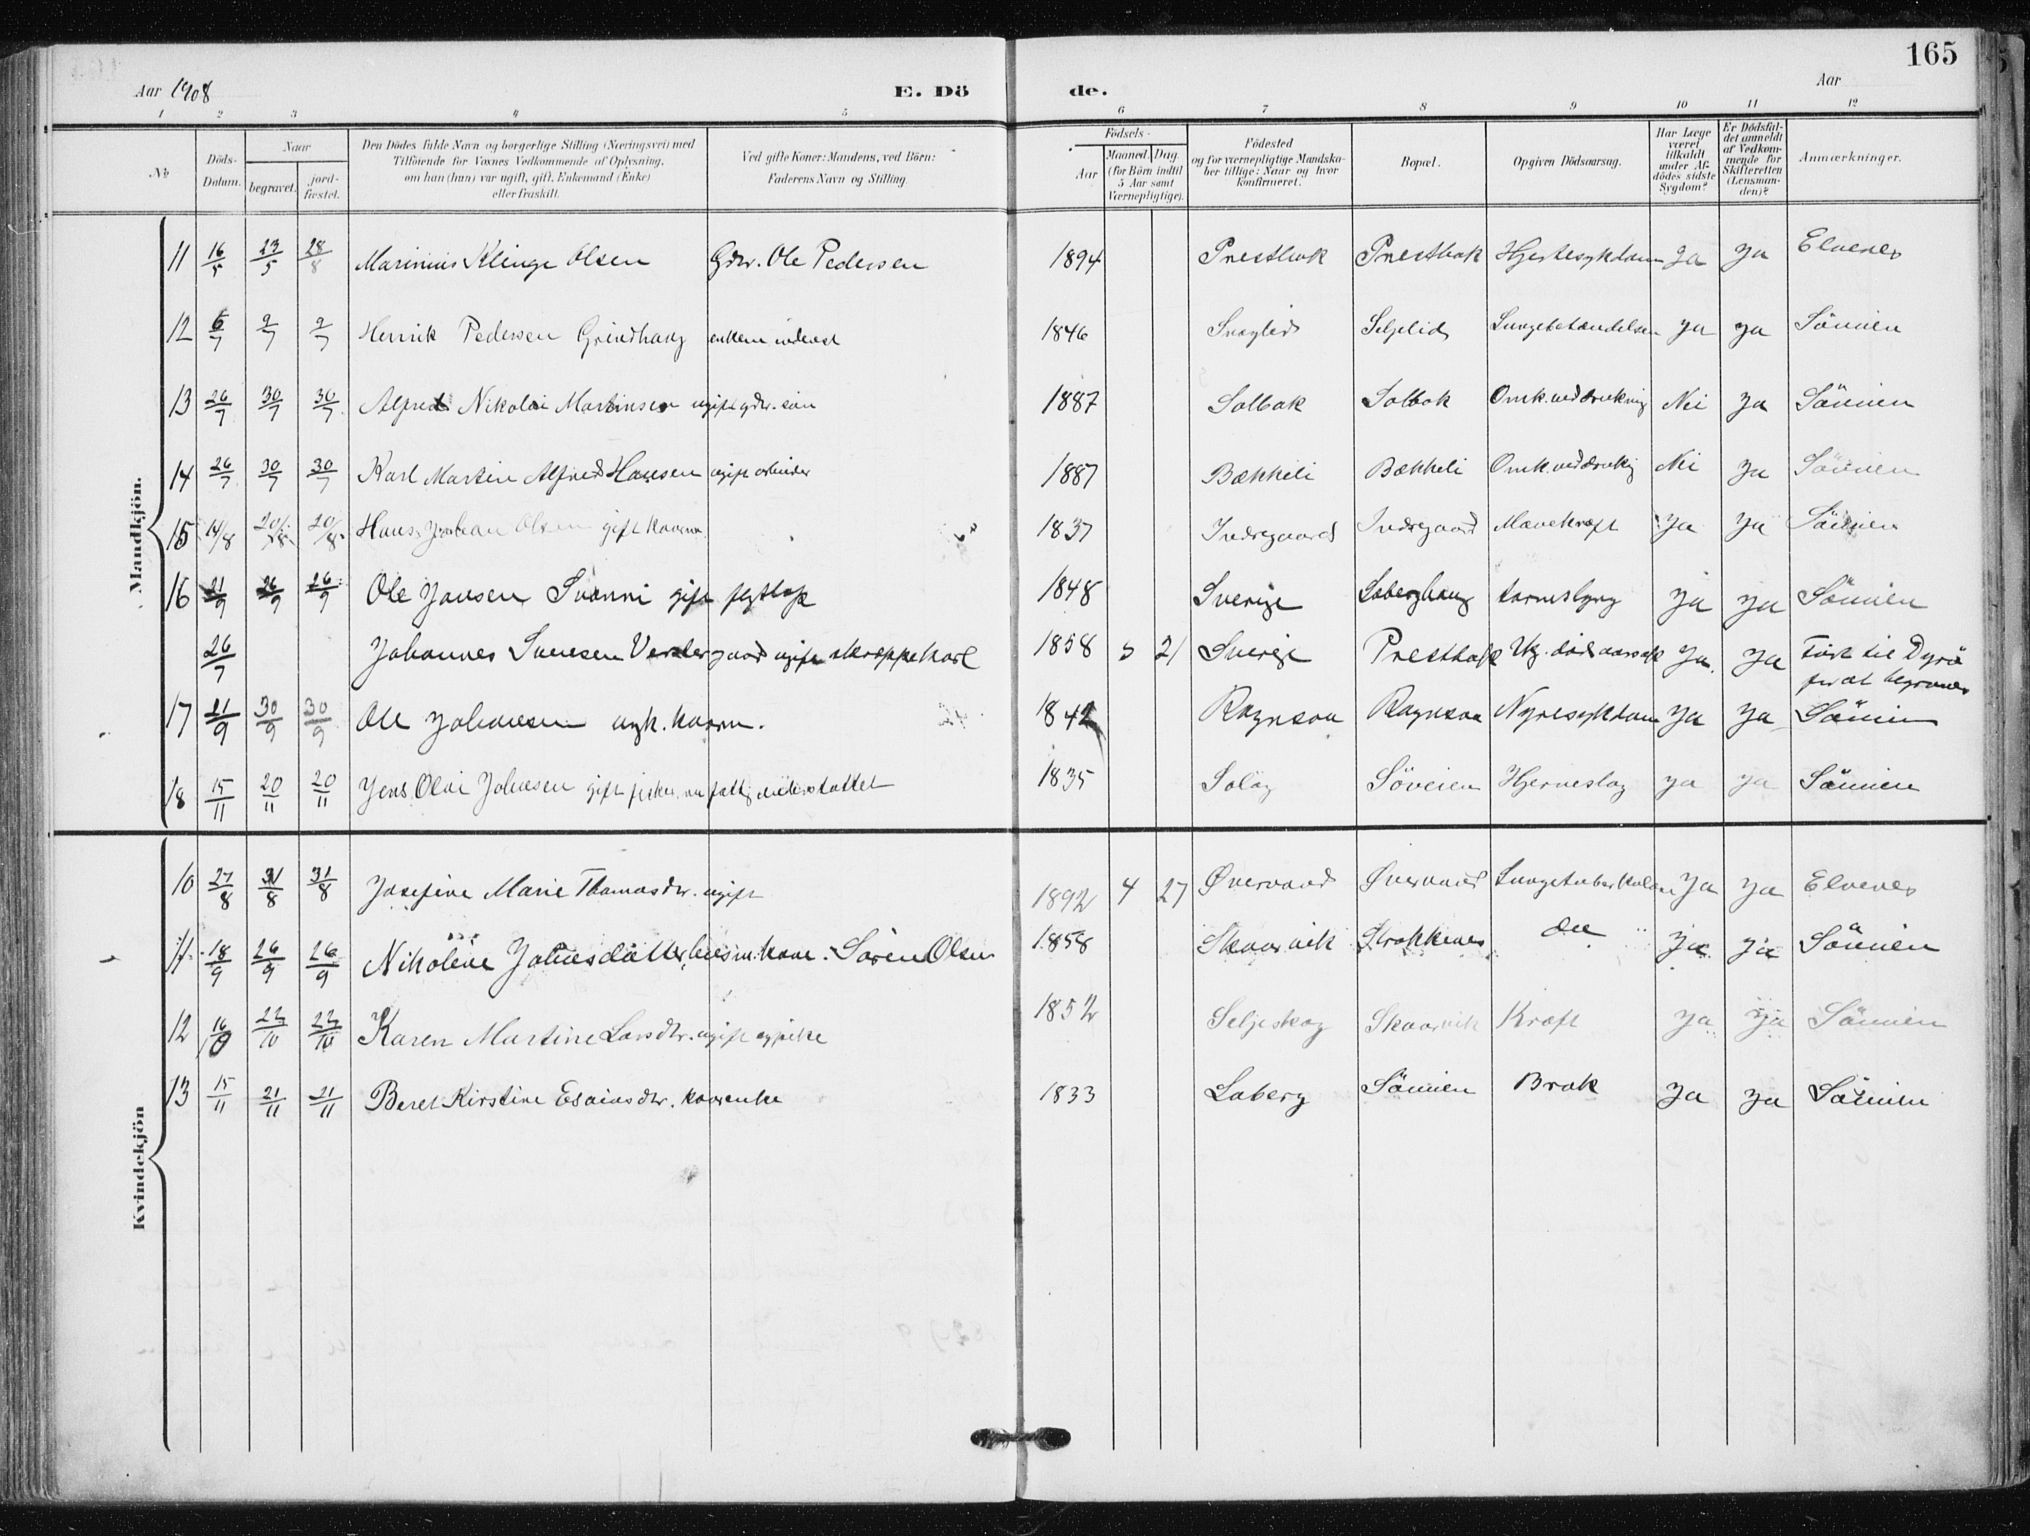 165
Aar 1908 E. Dö de. Aar
1 2 3 4 5 6 7 8 9 10 11 12
№
Döds-
Datum.
Naar
begravet.
jord-
fæstet.
Den Dödes fulde Navn og borgerlige Stilling (Næringsvei) med
Tilföiende for Voxnes Vedkommende af Oplysning,
om han (hun) var ugift, gift, Enkemand (Enke)
eller fraskilt.
Ved gifte Koner: Mandens, ved Börn:
Faderens Navn og Stilling.
Födsels-
Aar
Maaned. Dag.
(for Börn indtil
5 Aar samt
Værnepligtige).
Födested
og for værnepligtige Mandska-
ber tillige: Naar og hvor
konfirmeret.
Bopæl.
Opgiven Dödsaarsag.
Har Læge
været
tilkaldt
under Af-
dödes sidste
Sygdom?
Er Dödsfal-
det anmeldt
af Vedkom-
mende for
Skifteretten
(Lensman-
den)?
Anmærkninger.
Mandkjön.
11 16/5 23/5 28/8 Marinius Klinge Olsen Gdbr. Ole Pedersen 1894 Prestbak Prestbak Hjertesykdom Ja Ja Elvenes
12 6/7 9/7 9/7 Henrik Pedersen Grindhaug enkem inderst 1846 Seljelid Lungebetændelse Ja Ja Sömien
13 26/7 30/7 30/7 Alfred Nikolai Martinsen ugift gdbr. sön 1887 Solbak Solbak Omk. ved drukning Nei Ja Sömien
14 26/7 30/7 30/7 Karl Martin Alfred Hansen ugift arbeider 1887 Bækkeli Bækkeli Omk. ved drukng Nei Ja Sömien
15 14/8 20/8 20/8 Hans Johan Olsen gift kaarm 1837 Indregaard Indregaard Mavekræft Ja Ja Sömien
16 21/9 26/9 26/9 Ole Jonsen Svonni gift flytlap 1848 Sverige Laberghaug tarmslyng Ja Ja Sömien
26/7 Johannes Svensen Vestergaard ugift skreppekarl 1858 5 21 Sverige Prestbak Uk. dödsaarsak Ja Ja Fört til Dyrö
for at begraves
17 21/9 30/9 30/9 Ole Johansen ugk. kaarm. 1842 Rognsaa Rognsaa Nyresykdom Ja Ja Sömien
18 15/11 20/11 20/11 Jens Olai Johnsen gift fisker, nu fattigunderstöttet 1835 Soløy Söveien Hjerneslag Ja Ja Sömien
Kvindekjön
10 27/8 31/8 31/8 Josefine Marie Thomasdtr. ugift 1892 4 27 Øvervand Øvervand Lungetuberkulose Ja Ja Elvenes
11 18/9 26/9 26/9 Nikoline Johnsdatter, husm. kone. Sören Olsen 1858 Skaarvik Strokkenes do Ja Ja Sömien
12 16/10 22/10 22/10 Karen Martine Larsdtr. ugift pike 1852 Seljeskog Skaarvik Kræft Ja Ja Sömien
13 15/11 21/11 21/11 Beret Kirstine Esaiasdtr. kaarenke 1833 Laberg Sömien Brok Ja Ja Sömien